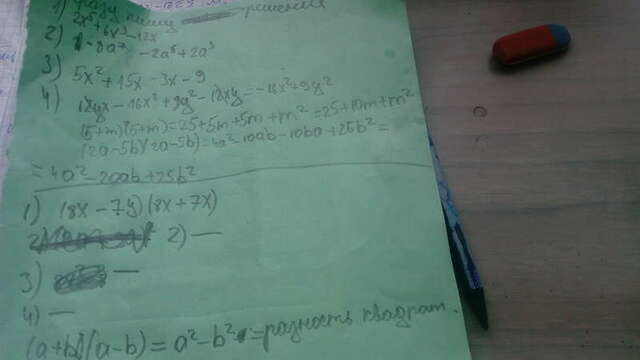 1) Сразу пишу решения
2x⁵+6x³-12x
2) -8a²-2a⁶+2a³
3) 5x²+15x-3x-9
4) 18yx-16x²+9y²-18xy=-16x²+9y²
(5+m)(5+m)=25+5m+5m+m²=25+10m+m²
(2a-5b)(2a-5b)=4a²-10ab-10ba+25b²=
=4a²-20ab+25b²
1) (8x-7y)(8x+7x)
2) 2) —
3) —
4) —
(a+b)(a-b)=a²-b² -разность квадрат.